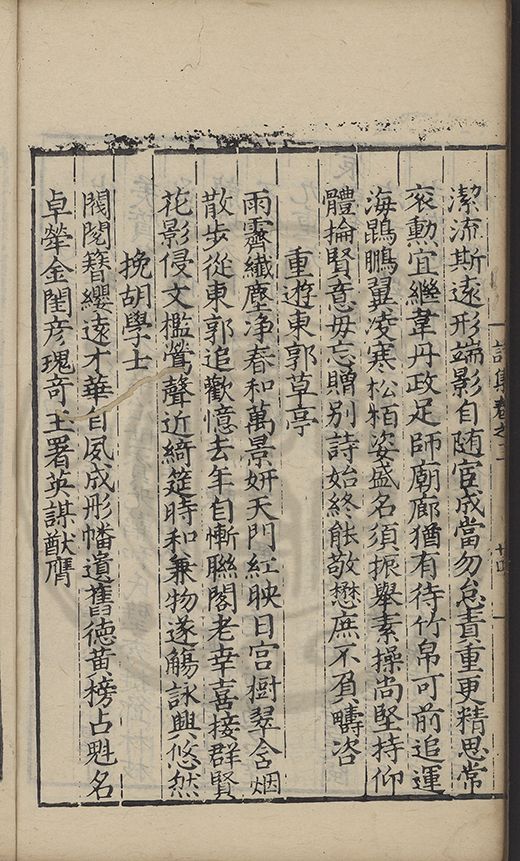 詩集卷之二 廿四
潔流斯遠形端影自随宦成當勿怠責重更精思常
衮勳宜繼韋丹政足師廟廊猶有待竹帛可前追運
海鵾鵬翼凌寒松栢姿盛名須振舉素操尚堅持仰
體掄賢意毋忘贈别詩始終能敬懋庶不負疇咨
重遊東郭草亭
雨霽纖塵净春和萬景妍天門紅映日宫樹翠含烟
散步從東郭追歡憶去年自慚聯閣老幸喜接群賢
花影侵文檻鶯聲近綺筵時和兼物遂觴詠興悠然
挽胡學士
閥閱簪纓遠才華自夙成彤幡遺舊德黄榜占魁名
卓犖金閨彦瑰竒玉署英謀猷膺